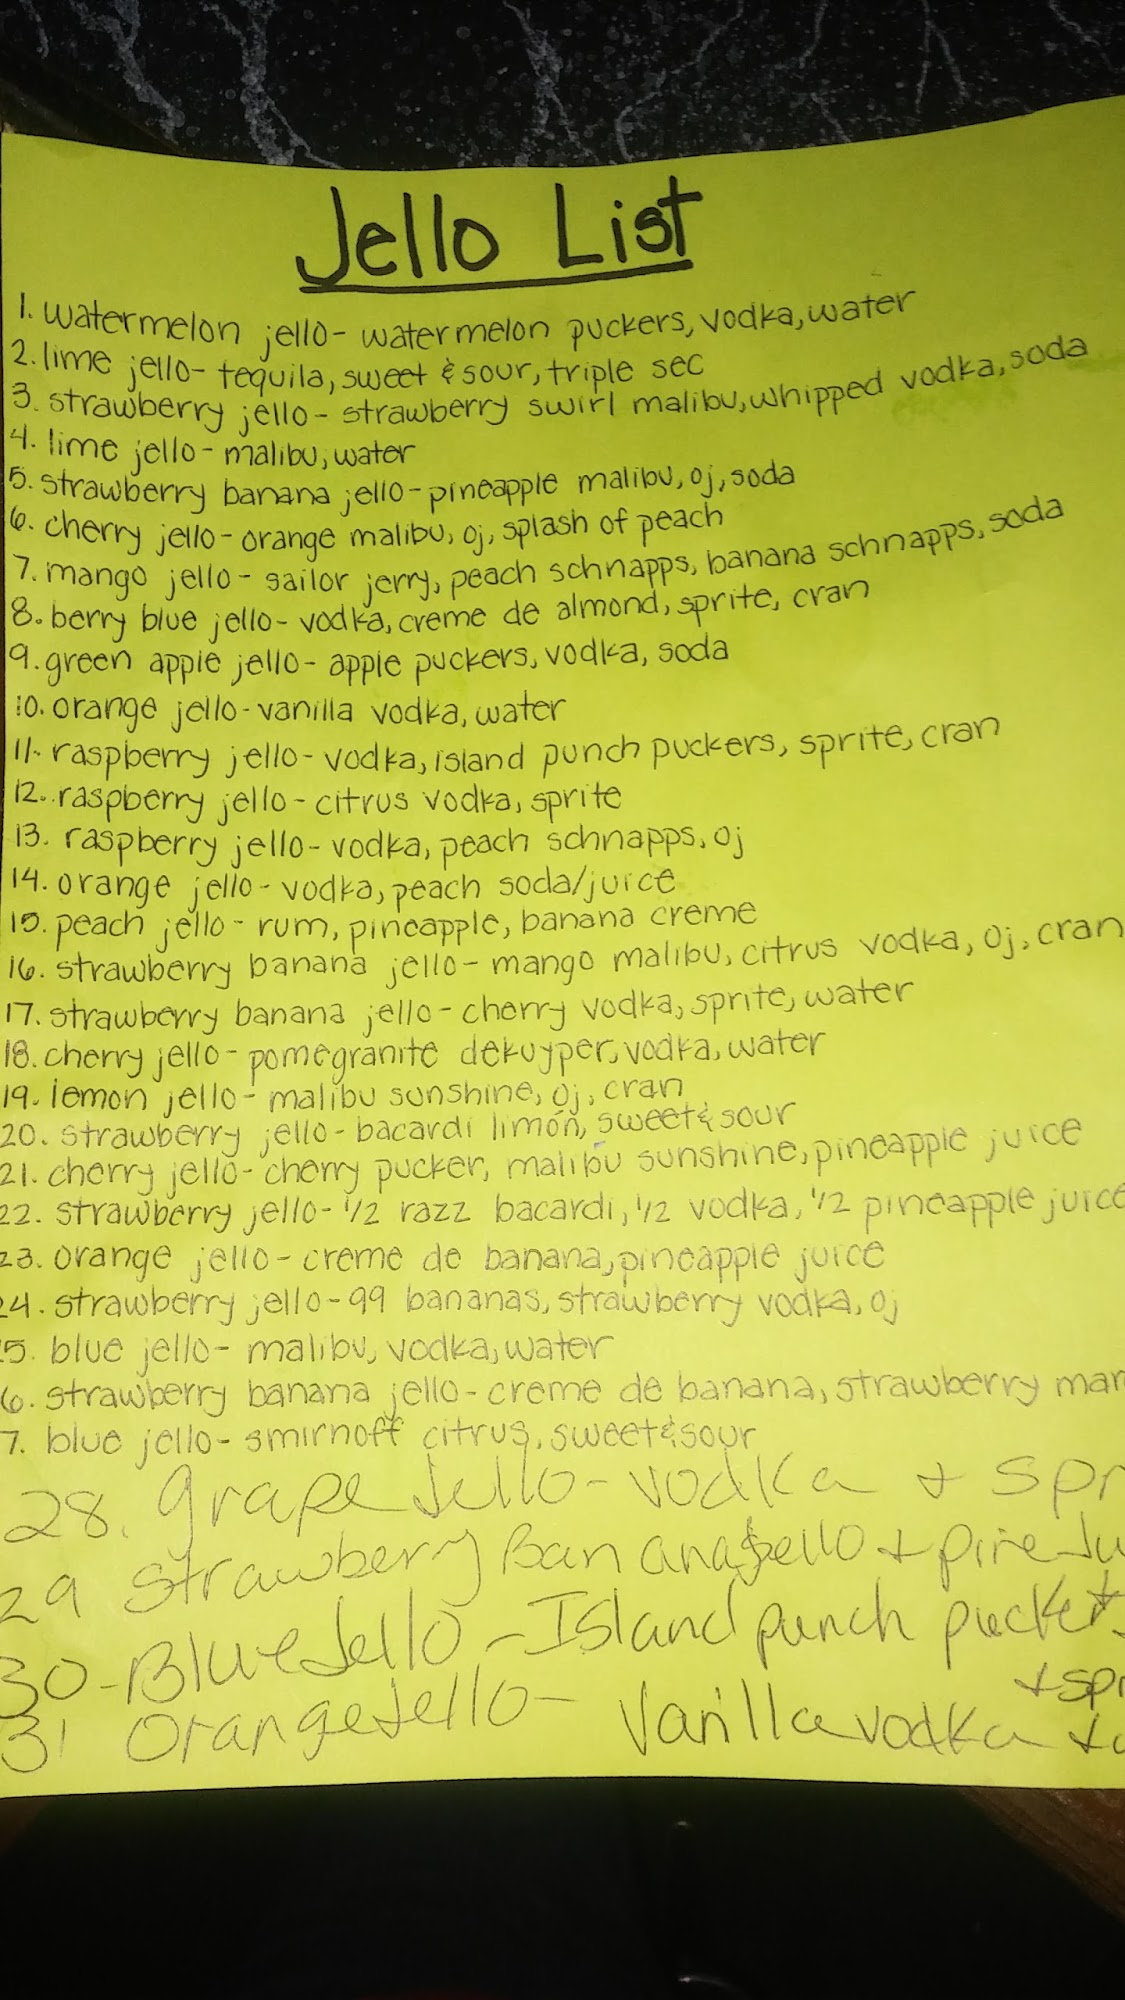 Jello List
1. watermelon jello- watermelon puckers, vodka, water
2. lime jello- tequila, sweet & sour, triple sec
3. strawberry jello- strawberry swirl malibu, whipped vodka, soda
4. lime jello- malibu, water
5. strawberry banana jello- pineapple malibu, oj, soda
6. cherry jello- orange malibu, oj, splash of peach
7. mango jello- sailor jerry, peach schnapps, banana schnapps, soda
8. berry blue jello- vodka, creme de almond, sprite, cran
9. green apple jello- apple puckers, vodka, soda
10. orange jello- vanilla vodka, water
11. raspberry jello- vodka, island punch puckers, sprite, cran
12. raspberry jello- citrus vodka, sprite
13. raspberry jello- vodka, peach schnapps, oj
14. orange jello- vodka, peach soda/juice
15. peach jello- rum, pineapple, banana creme
16. strawberry banana jello- mango malibu, citrus vodka, oj, cran
17. strawberry banana jello- cherry vodka, sprite, water
18. cherry jello- pomegranite dekuyper, vodka, water
19. lemon jello- malibu sunshine, oj, cran
20. strawberry jello- bacardi limón, sweet & sour
21. cherry jello- cherry pucker, malibu sunshine, pineapple juice
22. strawberry jello- 1/2 razz bacardi, 1/2 vodka, 1/2 pineapple juice
23. orange jello- creme de banana, pineapple juice
24. strawberry jello- 99 bananas, strawberry vodka, oj
5. blue jello- malibu, vodka, water
6. strawberry banana jello- creme de banana, strawberry mar
7. blue jello- smirnoff citrus, sweet & sour
28. grape Jello- vodka + spr
29 strawberry Banana Jello + pine Ju
30- Blue Jello- Island punch pucker
+ spr
31 Orange Jello- Vanilla vodka +